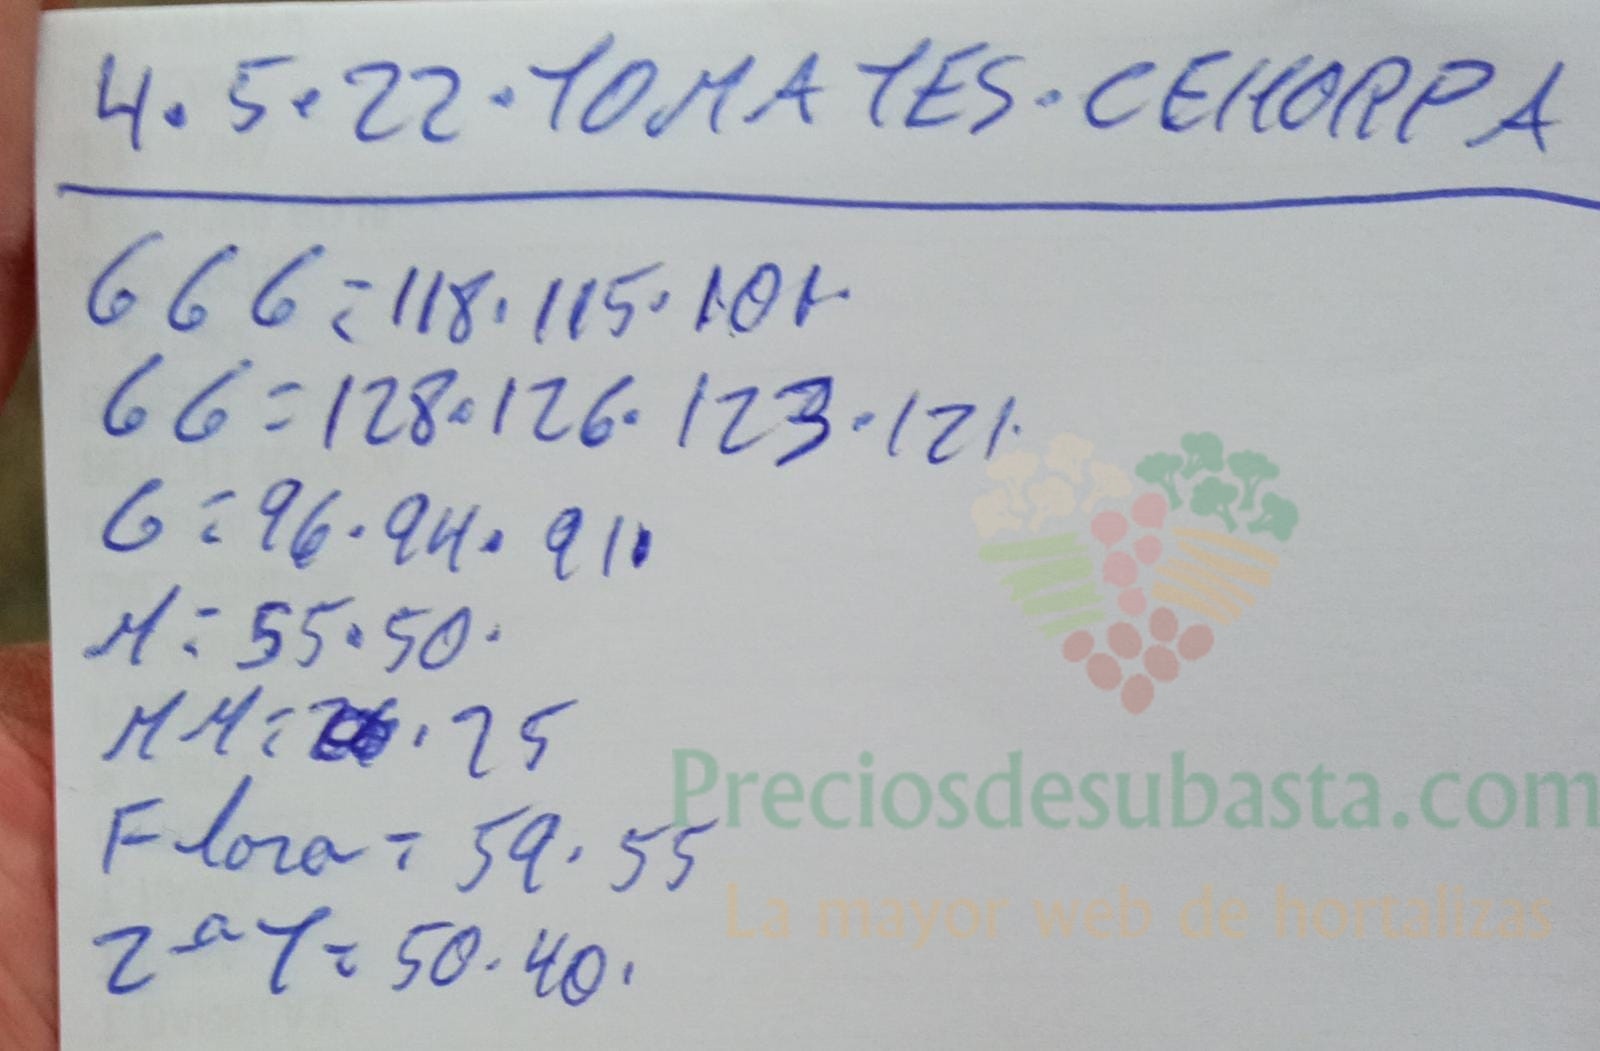 4.5.22.TOMATES.CEHORPA
GGG=118.115.101.
GG=128.126.123.121.
G=96.94.91.
M=55.50.
MM= .25
Flora=59.55
2ªT=50.40.
Preciosdesubasta.com
La mayor web de hortalizas